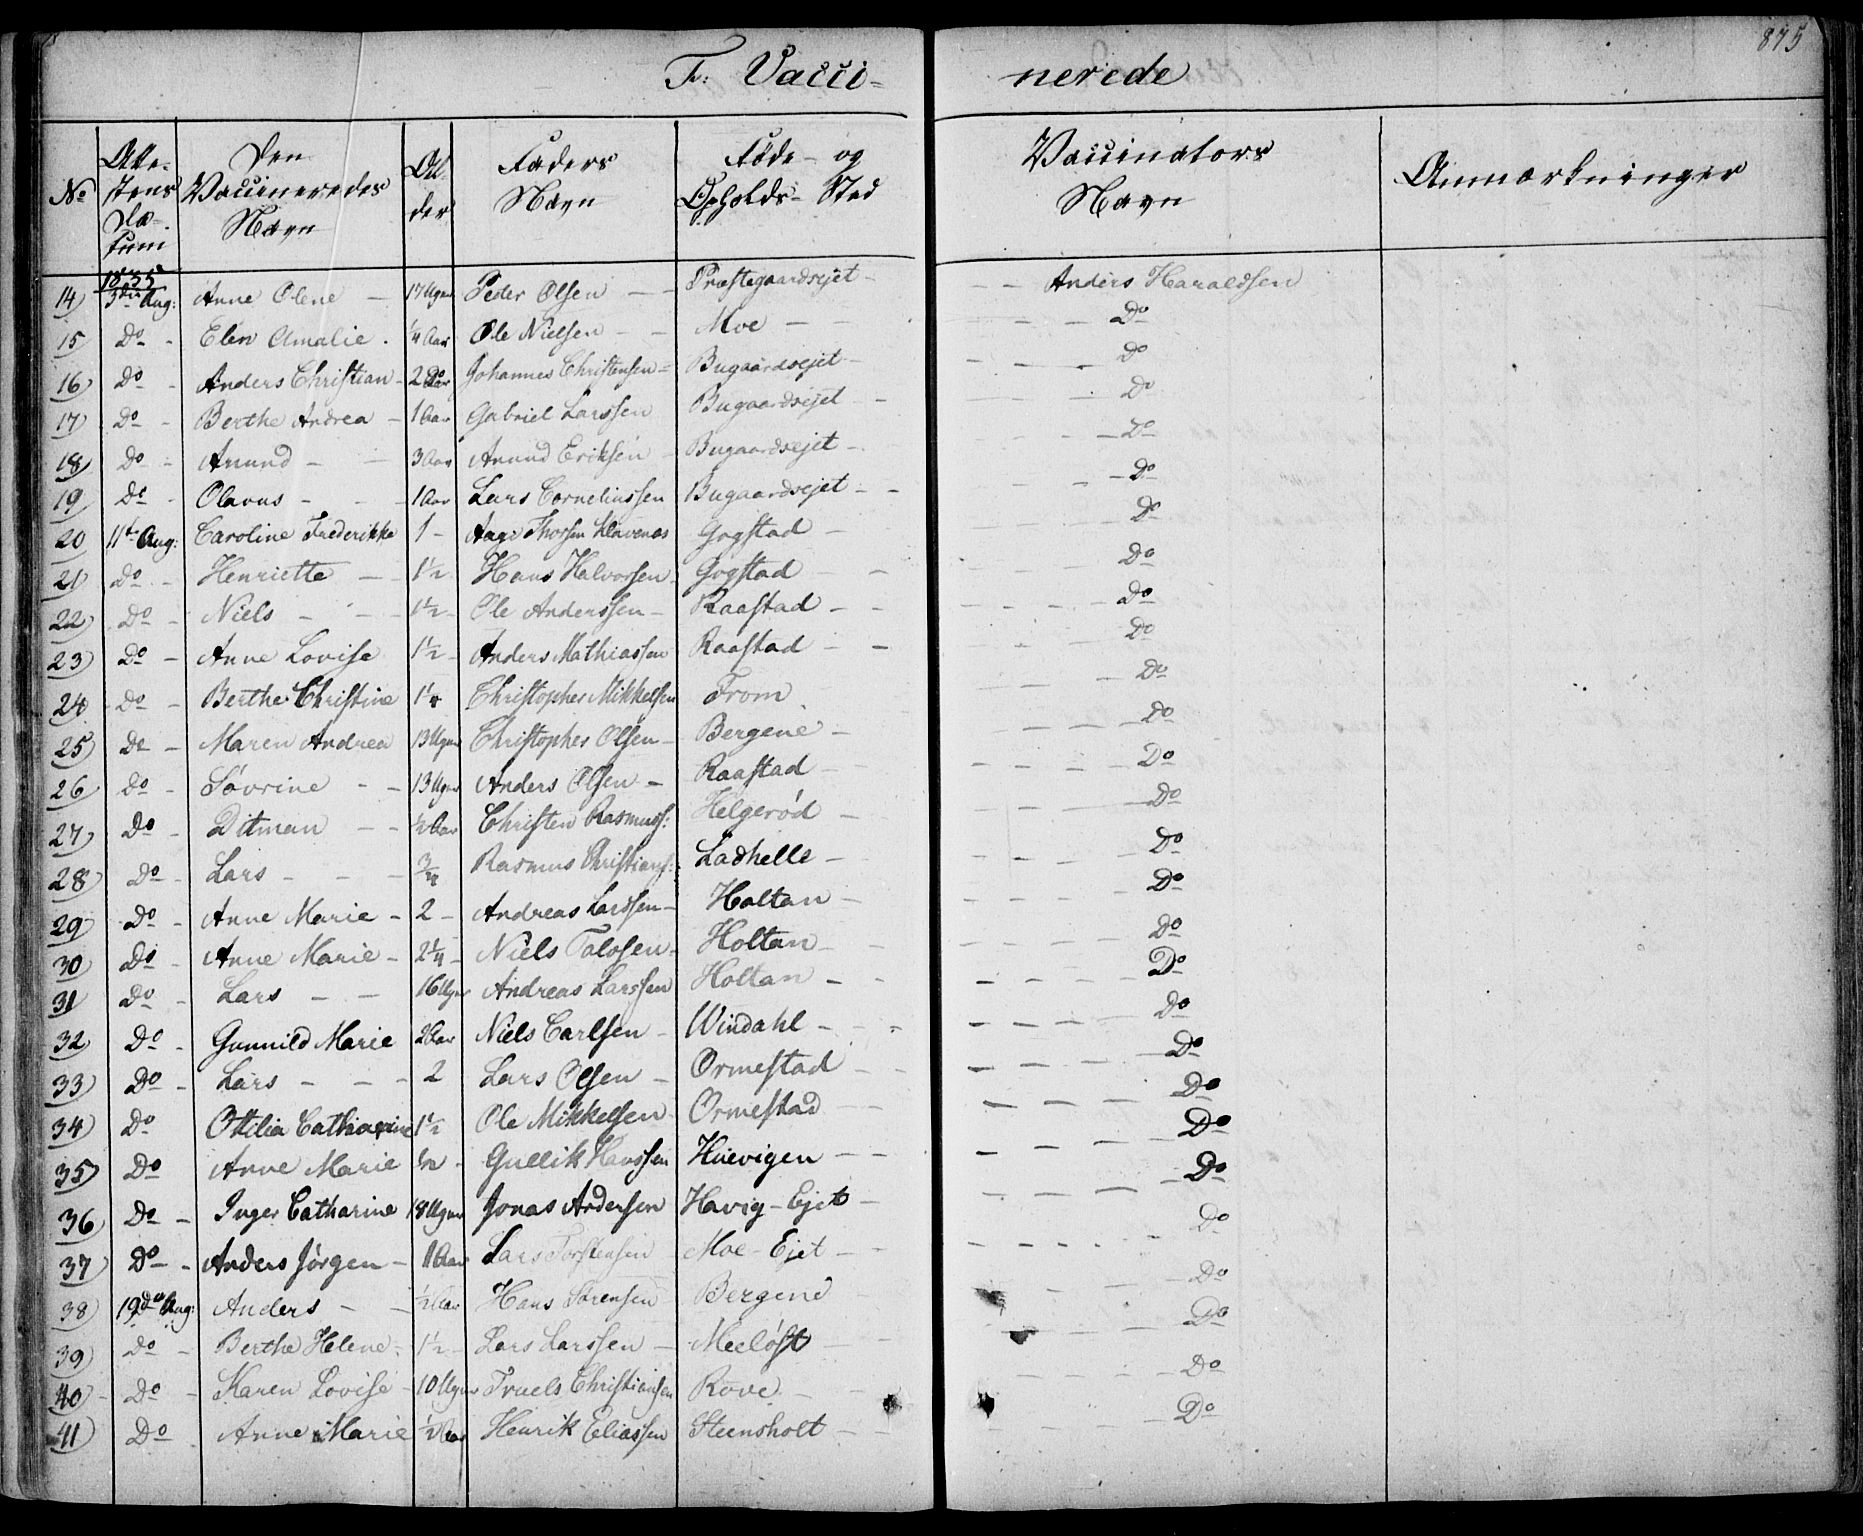 875
F: Vacci= nerede
No | Atte-stens Datum | Den Vaccineredes Navn | Alder | Faders Navn | Føde- og Opholds-Sted | Vaccinators Navn | Anmærkninger
1835
14) 3die Aug: Anne Olene — 17 Uger Peder Olsen — Præstegaardsejet — Anders Haraldsen
15 Do - Elen Amalie . 1/4 Aar Ole Nielsen — Moe — Do
16) Do - Anders Christian - 2 Do Johannes Christensen = Bugaardsejet — Do
17) Do - Berthe Andrea - 1 Aar Gabriel Larssen Bugaardsejet — Do
18) Do - Anund — 3 Aar Anund Eriksen - Bugaardsejet — Do
19) Do - Olavus — 1 Aar Lars Corneliussen Bugaardsejet — Do
20 11te Aug: Caroline Frederikke 1 - Aage Thorsen Klavenes Gogstad — Do
21) Do - Henriette — 1½ Hans Halvorsen Gogstad — Do
22) Do - Niels — 1½ Ole Anderssen — Raastad — Do
23) Do - Anne Lovise 1½ - Anders Mathiassen Raastad — Do
24 Do - Berthe Christine 1¼ Christopher Mikkelsen From Do
25) Do - Maren Andrea 13 Uger Christopher Olsen — Bergene — Do
26 Do - Søvrine — 13 Uger Anders Olsen — Raastad — Do
27) Do - Ditman — ½ Aar Christen Rasmuss: Helgerød — Do
28) Do - Lars — 3/4 Rasmus Christians: Ladhelle — Do
29) Do - Anne Marie - 2 - Andreas Larssen — Holtan — Do
30 Do - Anne Marie - 2¼ - Niels Tolosen - Holtan — Do
31 Do - Lars — 16 Uger Andreas Larssen Holtan — Do
32) Do - Gunnild Marie 2 Aar Niels Carlsen — Windahl — Do
33) Do - Lars — 2 Lars Olsen — Ormestad — Do
34) Do Ottilia Catharine 1½ Ole Mikkelsen Ormestad — Do
35) Do Anne Marie ½ - Gullik Hanssen Huevigen — Do
36) Do - Inger Catharine 18 Uger Jonas Andersen Havig-Ejet — Do
37 Do - Anders Jørgen - 1 Aar Lars Torstensen - Moe-Ejet — Do
38) 19de Aug: Anders — ½ Aar Hans Sørensen Bergene Do
39) Do - Berthe Helene - 1½ - Lars Larssen — Meeløst — Do
40 - Do - Karen Lovise - 10 Uger Truels Christiansen Rove — Do
41 Do Anne Marie ½ Aar Henrik Eliassen Steensholt — Do